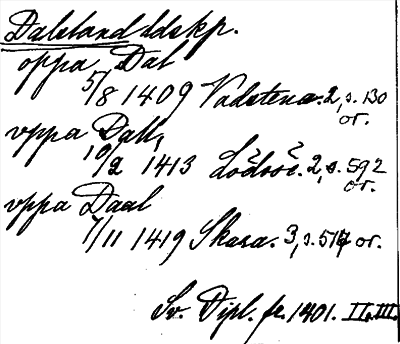 Dalsland ldskp.
oppa Dal
5/8 1409 Vadstena. 2, s. 130
or.
vppa Dall,
19/2 1413 Lödöse. 2, s. 592
or.
vppa Daal
7/11 1419 Skara. 3, s. 517 or.
Sv. Dipl. fr. 1401. II. III.